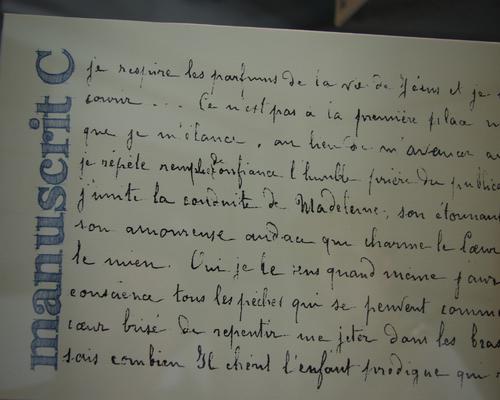 manuscrit C
je respire les parfums de la vie de Jésus et je
courir ... Ce n'est pas à la première place
que je m'élance, au lieu de m'avancer
je répète remplie de confiance l'humble prière du publica
j'imite la conduite de Madeleine, son étonnant
son amoureuse audace que charme le Cœur
le mien. Oui je le sens quand même j'aur
conscience tous les péchés qui se peuvent comm
cœur brisé de repentir me jeter dans les bras
sais combien Il chérit l'enfant prodigue qui